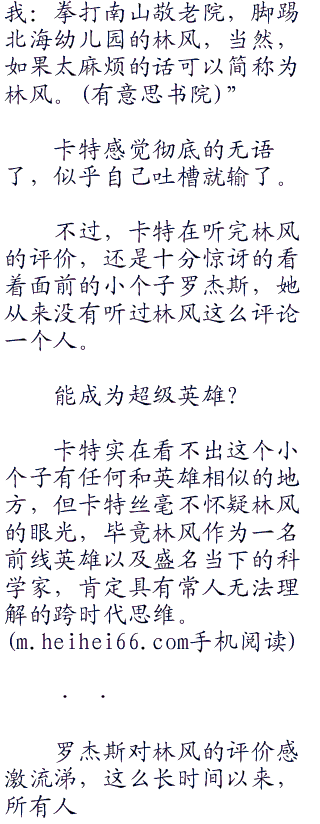 我：拳打南山敬老院，脚踢
北海幼儿园的林风，当然，
如果太麻烦的话可以简称为
林风。(有意思书院)”
卡特感觉彻底的无语
了，似乎自己吐槽就输了。
不过，卡特在听完林风
的评价，还是十分惊讶的看
着面前的小个子罗杰斯，她
从来没有听过林风这么评论
一个人。
能成为超级英雄？
卡特实在看不出这个小
个子有任何和英雄相似的地
方，但卡特丝毫不怀疑林风
的眼光，毕竟林风作为一名
前线英雄以及盛名当下的科
学家，肯定具有常人无法理
解的跨时代思维。
(m.heihei66.com手机阅读)
．．
罗杰斯对林风的评价感
激流涕，这么长时间以来，
所有人